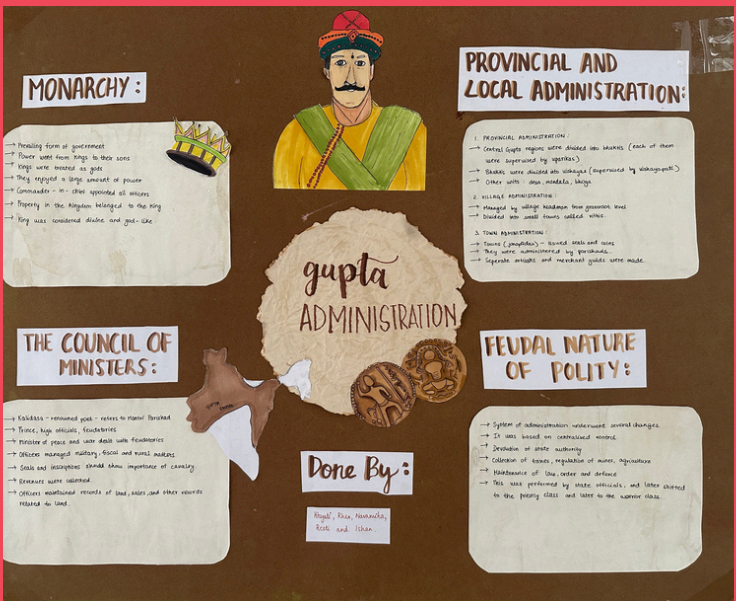 MONARCHY:
→ Prevailing form of government
→ Power went from kings to their sons
→ Kings were treated as gods
→ They enjoyed a large amount of power
→ Commander - in - chief appointed all officers
→ Property in the kingdom belonged to the king
→ King was considered divine and god-like
PROVINCIAL AND
LOCAL ADMINISTRATION:
1. PROVINCIAL ADMINISTRATION:
→ Central Gupta regions were divided into bhuktis (each of them
were supervised by uparikas)
→ Bhuktis were divided into vishayas (supervised by vishayapati)
→ Other units: desa, mandala, bhoga
2. VILLAGE ADMINISTRATION:
→ Managed by village headman from grassroot level
→ Divided into small towns called vithis.
3. TOWN ADMINISTRATION:
→ Towns - issued seals and coins
→ They were administered by parishads.
→ Seperate artisans and merchant guilds were made.
gupta
ADMINISTRATION
THE COUNCIL OF
MINISTERS:
→ Kalidasa - renowned poet - refers to Mantri Parishad
→ Prince, high officials, feudatories
→ Minister of peace and war dealt with feudatories
→ Officers managed military, fiscal and rural matters
→ Seals and inscriptions should show importance of cavalry
→ Revenues were collected.
→ Officers maintained records of land, sales, and other records
related to land.
FEUDAL NATURE
OF POLITY:
→ System of administration underwent several changes
→ It was based on centralised control
→ Devolution of state authority
→ Collection of taxes, regulation of mines, agriculture
→ Maintenance of law, order and defence
→ This was performed by state officials, and later shifted
to the priestly class and later to the warrior class.
Done By:
Khyati, Rhea, Navamika,
and Ishan.